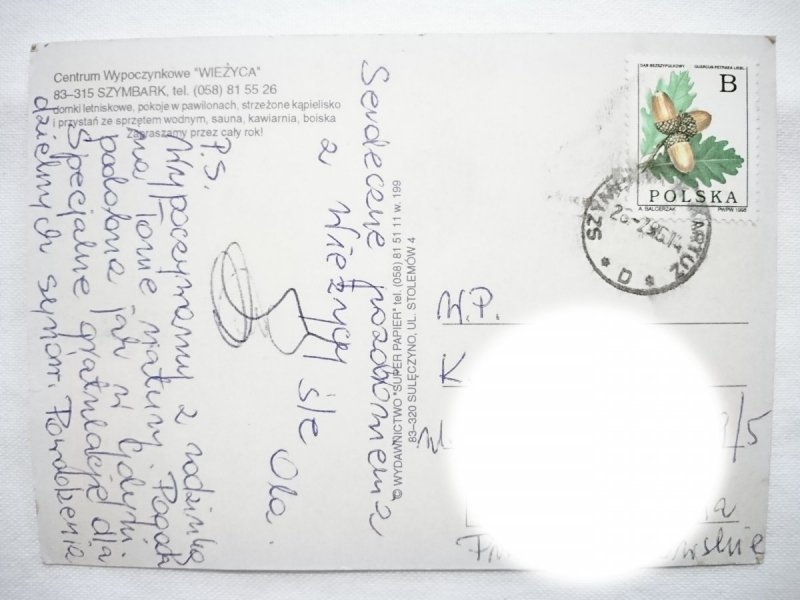 Centrum Wypoczynkowe "WIEŻYCA"
83–315 SZYMBARK, tel. (058) 81 55 26
domki letniskowe, pokoje w pawilonach, strzeżone kąpielisko
i przystań ze sprzętem wodnym, sauna, kawiarnia, boiska
Zapraszamy przez cały rok!
Serdeczne pozdrowienia
z Wieżycy śle Ola.
P.S.
Wypoczywamy z rodzinką
na łonie natury. Pogoda
podobna jak w Gdyni.
Specjalne gratulacje dla
dzielnych Pozdrowienia
© WYDAWNICTWO "SUPER PAPIER" tel. (058) 81 51 11 w. 199
83–320 SULĘCZYNO, UL. STOLEMÓW 4
DĄB BEZSZYPUŁKOWY QUERCUS PETRAEA LIEBL.
B
POLSKA
A. BALCERZAK PWPW 1995
KARTUZ
D
W.P.
K
/5